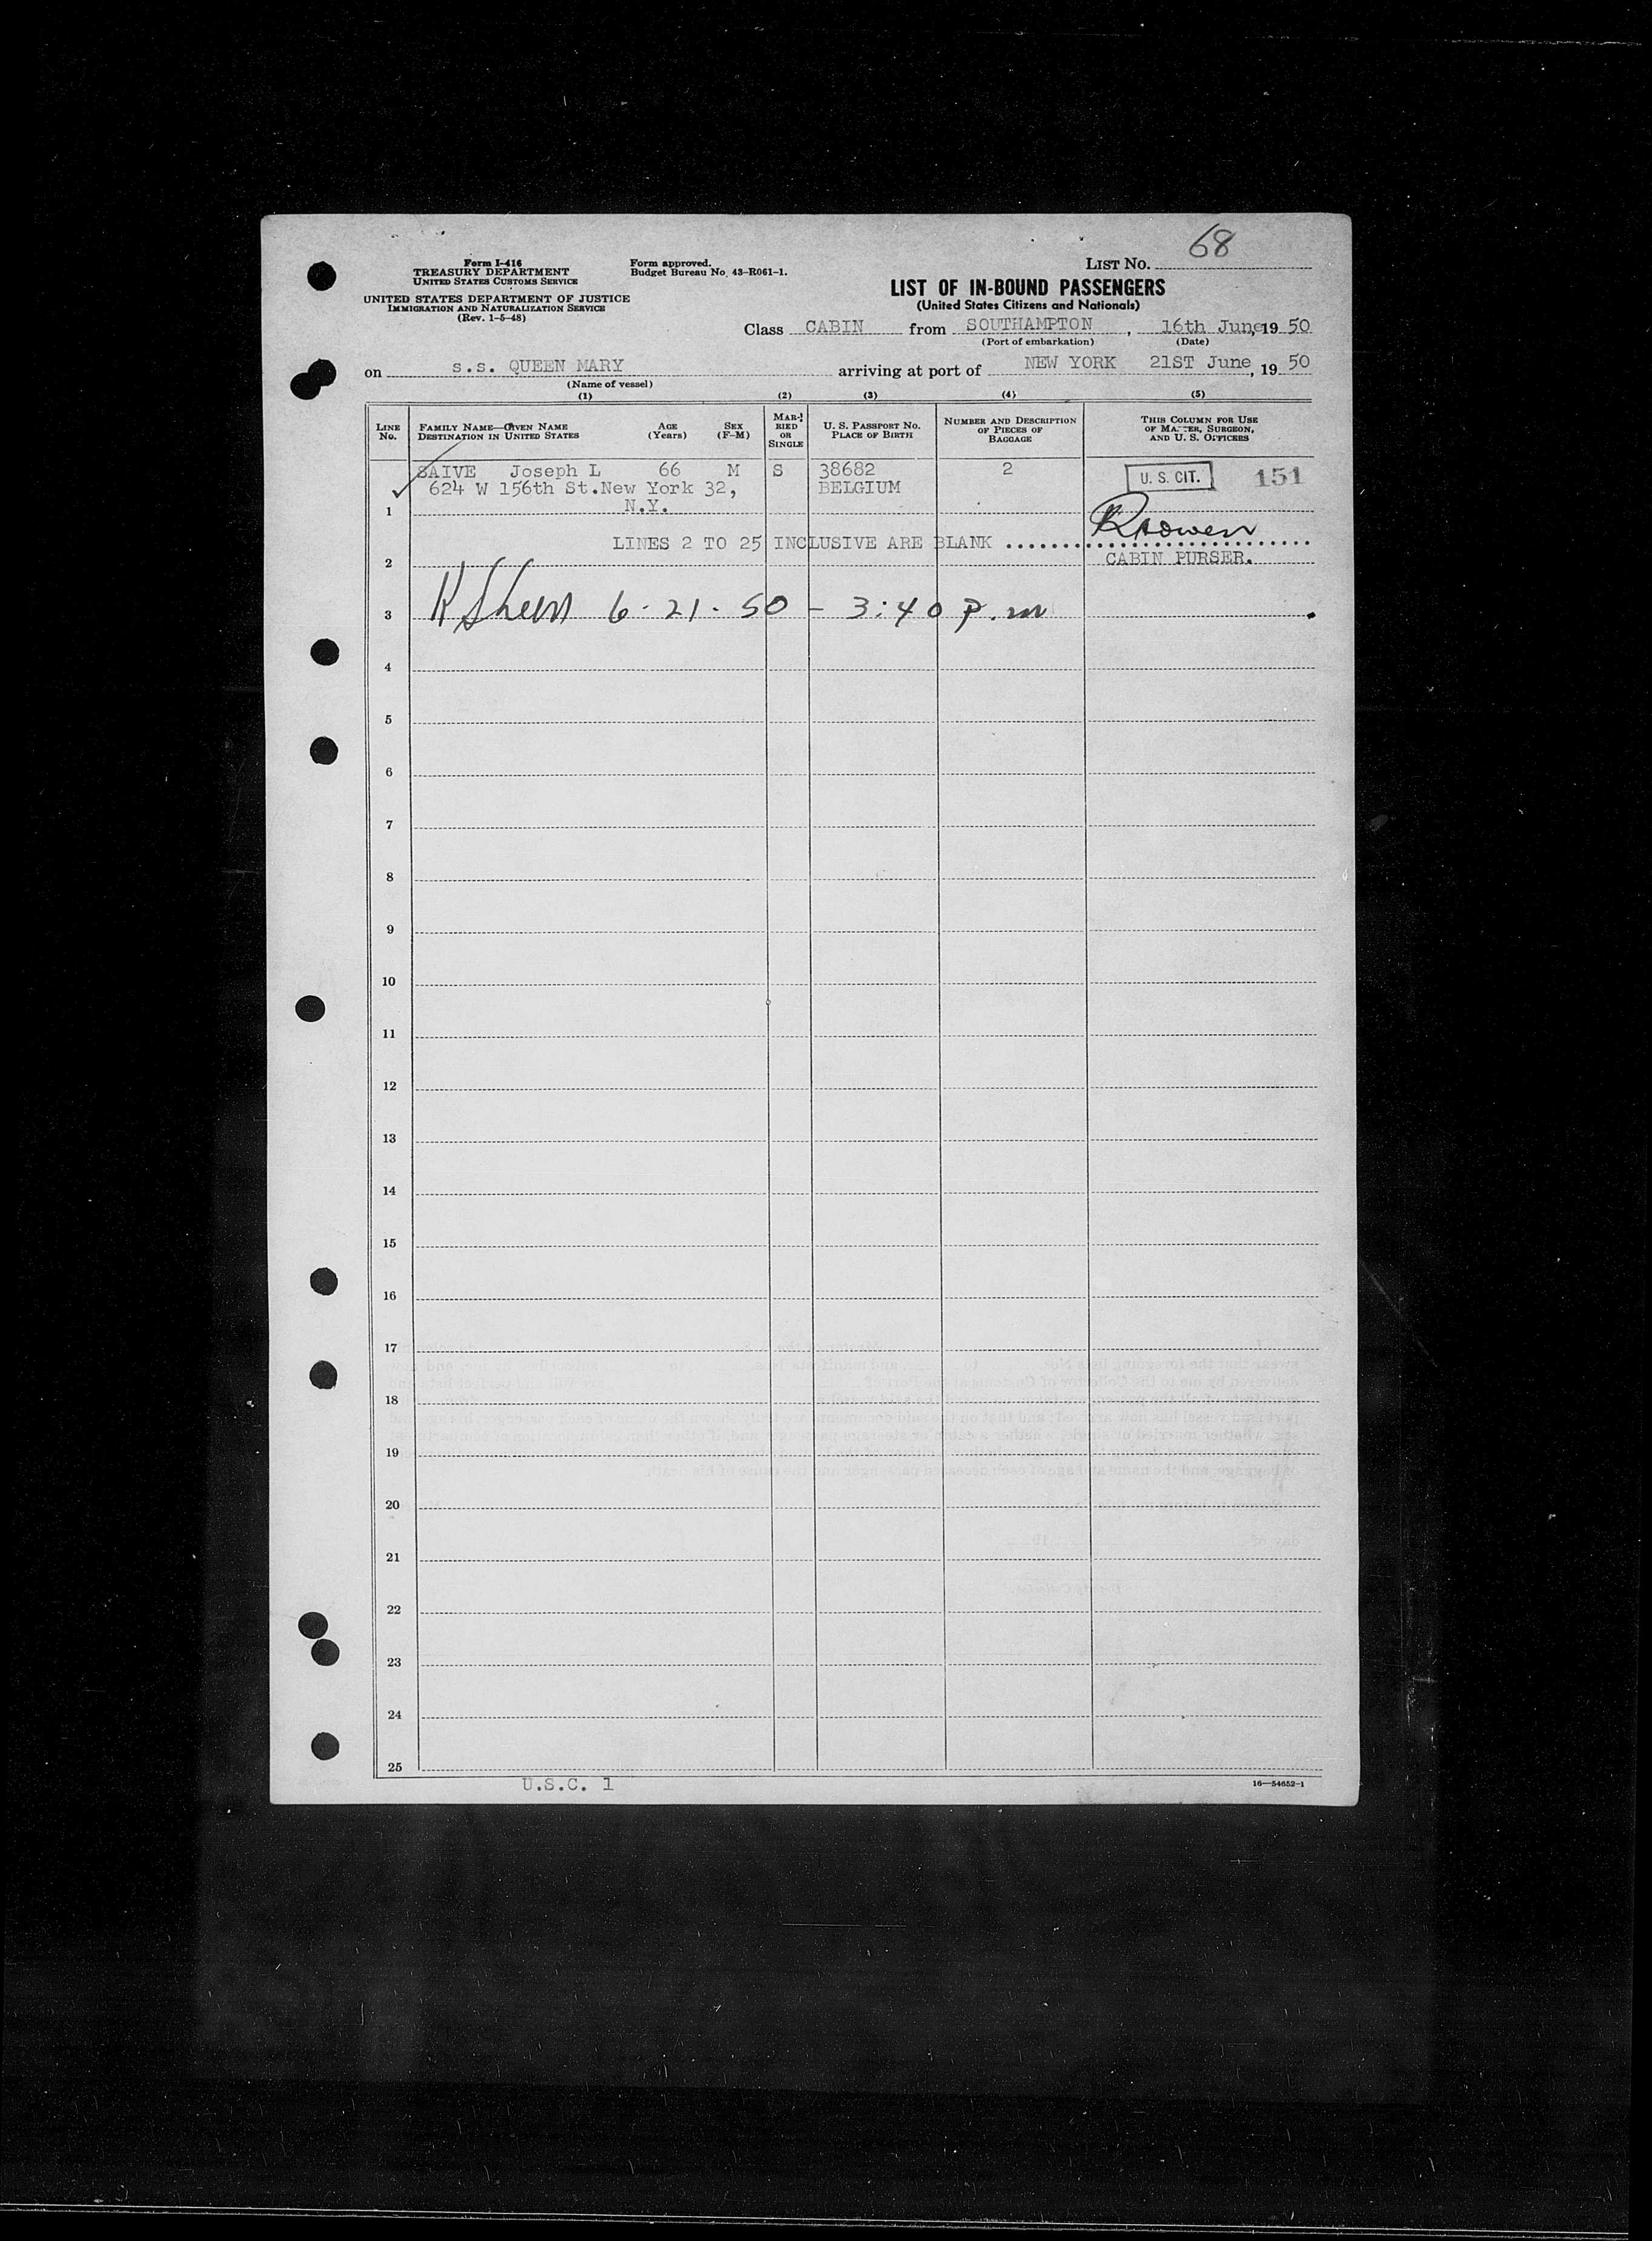 68
Form I-416
TREASURY DEPARTMENT
UNITED STATES CUSTOMS SERVICE
UNITED STATES DEPARTMENT OF JUSTICE
IMMIGRATION AND NATURALIZATION SERVICE
(Rev. 1-5-48)
Form approved.
Budget Bureau No. 43-R061-1.
LIST No.
LIST OF IN-BOUND PASSENGERS
(United States Citizens and Nationals)
Class CABIN from SOUTHAMPTON, 16th June, 19 50
(Port of embarkation) (Date)
on s.s. QUEEN MARY arriving at port of NEW YORK 21ST June, 19 50
(Name of vessel)
(1) (2) (3) (4) (5)
LINE No.
FAMILY NAME—GIVEN NAME
DESTINATION IN UNITED STATES
AGE (Years)
SEX (F-M)
MARRIED OR SINGLE
U. S. PASSPORT NO.
PLACE OF BIRTH
NUMBER AND DESCRIPTION OF PIECES OF BAGGAGE
THIS COLUMN FOR USE OF MASTER, SURGEON, AND U. S. OFFICERS
SAIVE Joseph L 66 M S 38682 2 U. S. CIT. 151
624 W 156th St.New York 32, BELGIUM
1 N.Y.
LINES 2 TO 25 INCLUSIVE ARE BLANK ..............................
2 CABIN PURSER.
3 6-21-50 - 3:40 p.m
4
5
6
7
8
9
10
11
12
13
14
15
16
17
18
19
20
21
22
23
24
25
U.S.C. 1
16—54652-1